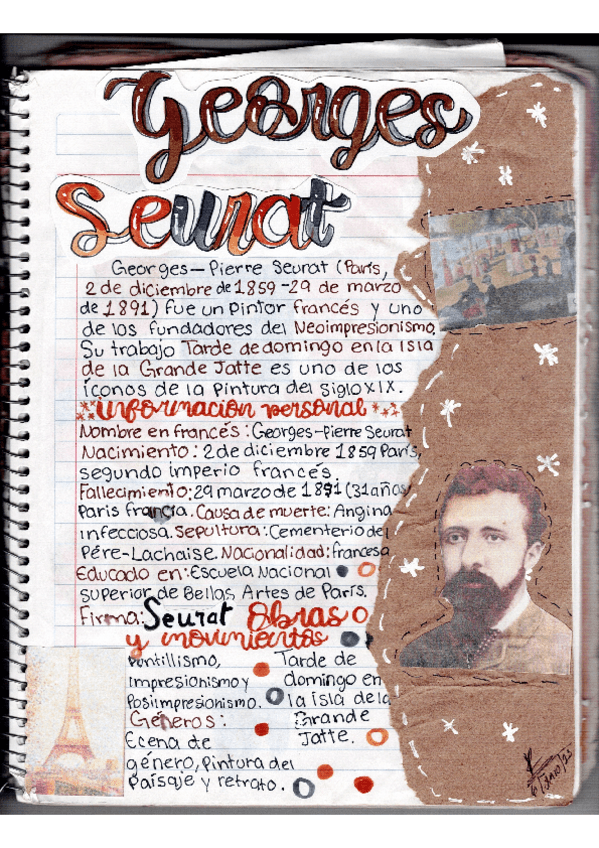 Georges
Seurat
Georges-Pierre Seurat (París,
2 de diciembre de 1859-29 de marzo
de 1891) fue un pintor francés y uno
de los fundadores del Neoimpresionismo,
Su trabajo Tarde de domingo en la Isla
de la Grande Jatte es uno de los
íconos de la pintura del siglo XIX.
información personal
Nombre en francés: Georges-Pierre Seurat
Nacimiento: 2 de diciembre 1859 París,
segundo imperio francés
Fallecimiento: 29 marzo de 1891 (31 años)
Paris francia. Causa de muerte: Angina
infecciosa. Sepultura: Cementerio de
Pére-Lachaise. Nacionalidad: francesa
Educado en: Escuela Nacional
superior de Bellas Artes de París.
Firma: Seurat Obras o
y movimientos
Puntillismo,
impresionismo y
Posiimpresionismo.
Géneros:
Ecena de
género, Pintura del
Paisaje y retrato.
Tarde de
domingo en
la isla de la
Grande
Jatte.